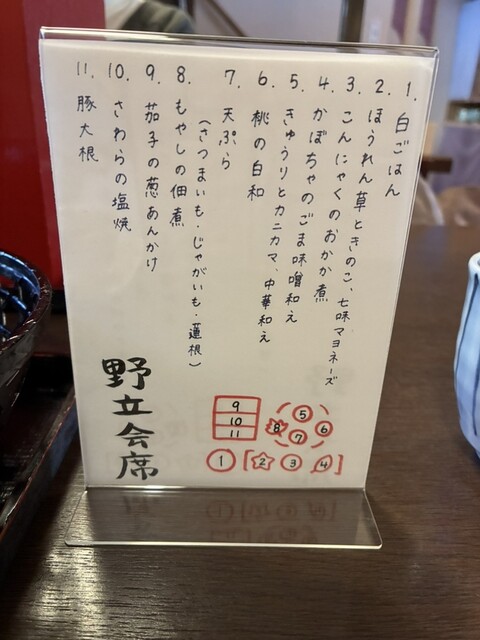 1. 白ごはん
2. ほうれん草ときのこ、七味マヨネーズ
3. こんにゃくのおかか煮
4. かぼちゃのごま味噌和え
5. きゅうりとカニカマ、中華和え
6. 桃の白和
7. 天ぷら
(さつまいも・じゃがいも・蓮根)
8. もやしの佃煮
9. 茄子の葱あんかけ
10. さわらの塩焼
11. 豚大根
野立会席
9
10
11
5
8
6
7
1
2
3
4